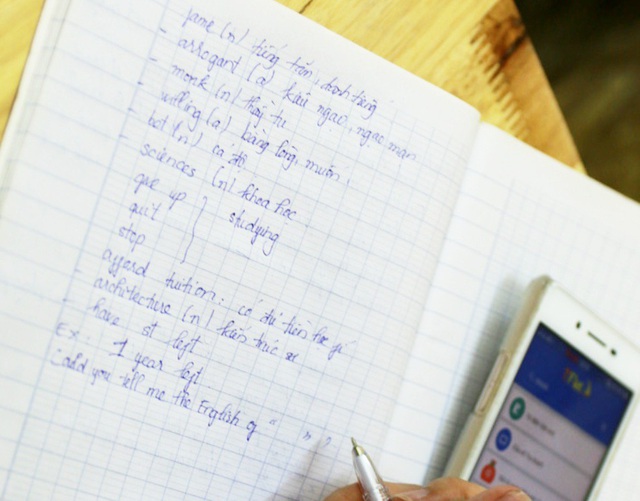 fame (n) tiếng tăm, danh tiếng
- arrogard (a) kiêu ngạo, ngạo mạn
- monk (n) thầy tu
- willing (a) bằng lòng, muốn,
- bet (n) cá độ
sciences (n) khoa học
give up
quit } studying
stop
afford tuition: có đủ tiền học phí
- architecture (n) kiến trúc sư
- have st left
Ex: 1 year left
could you tell me the English of " " ?